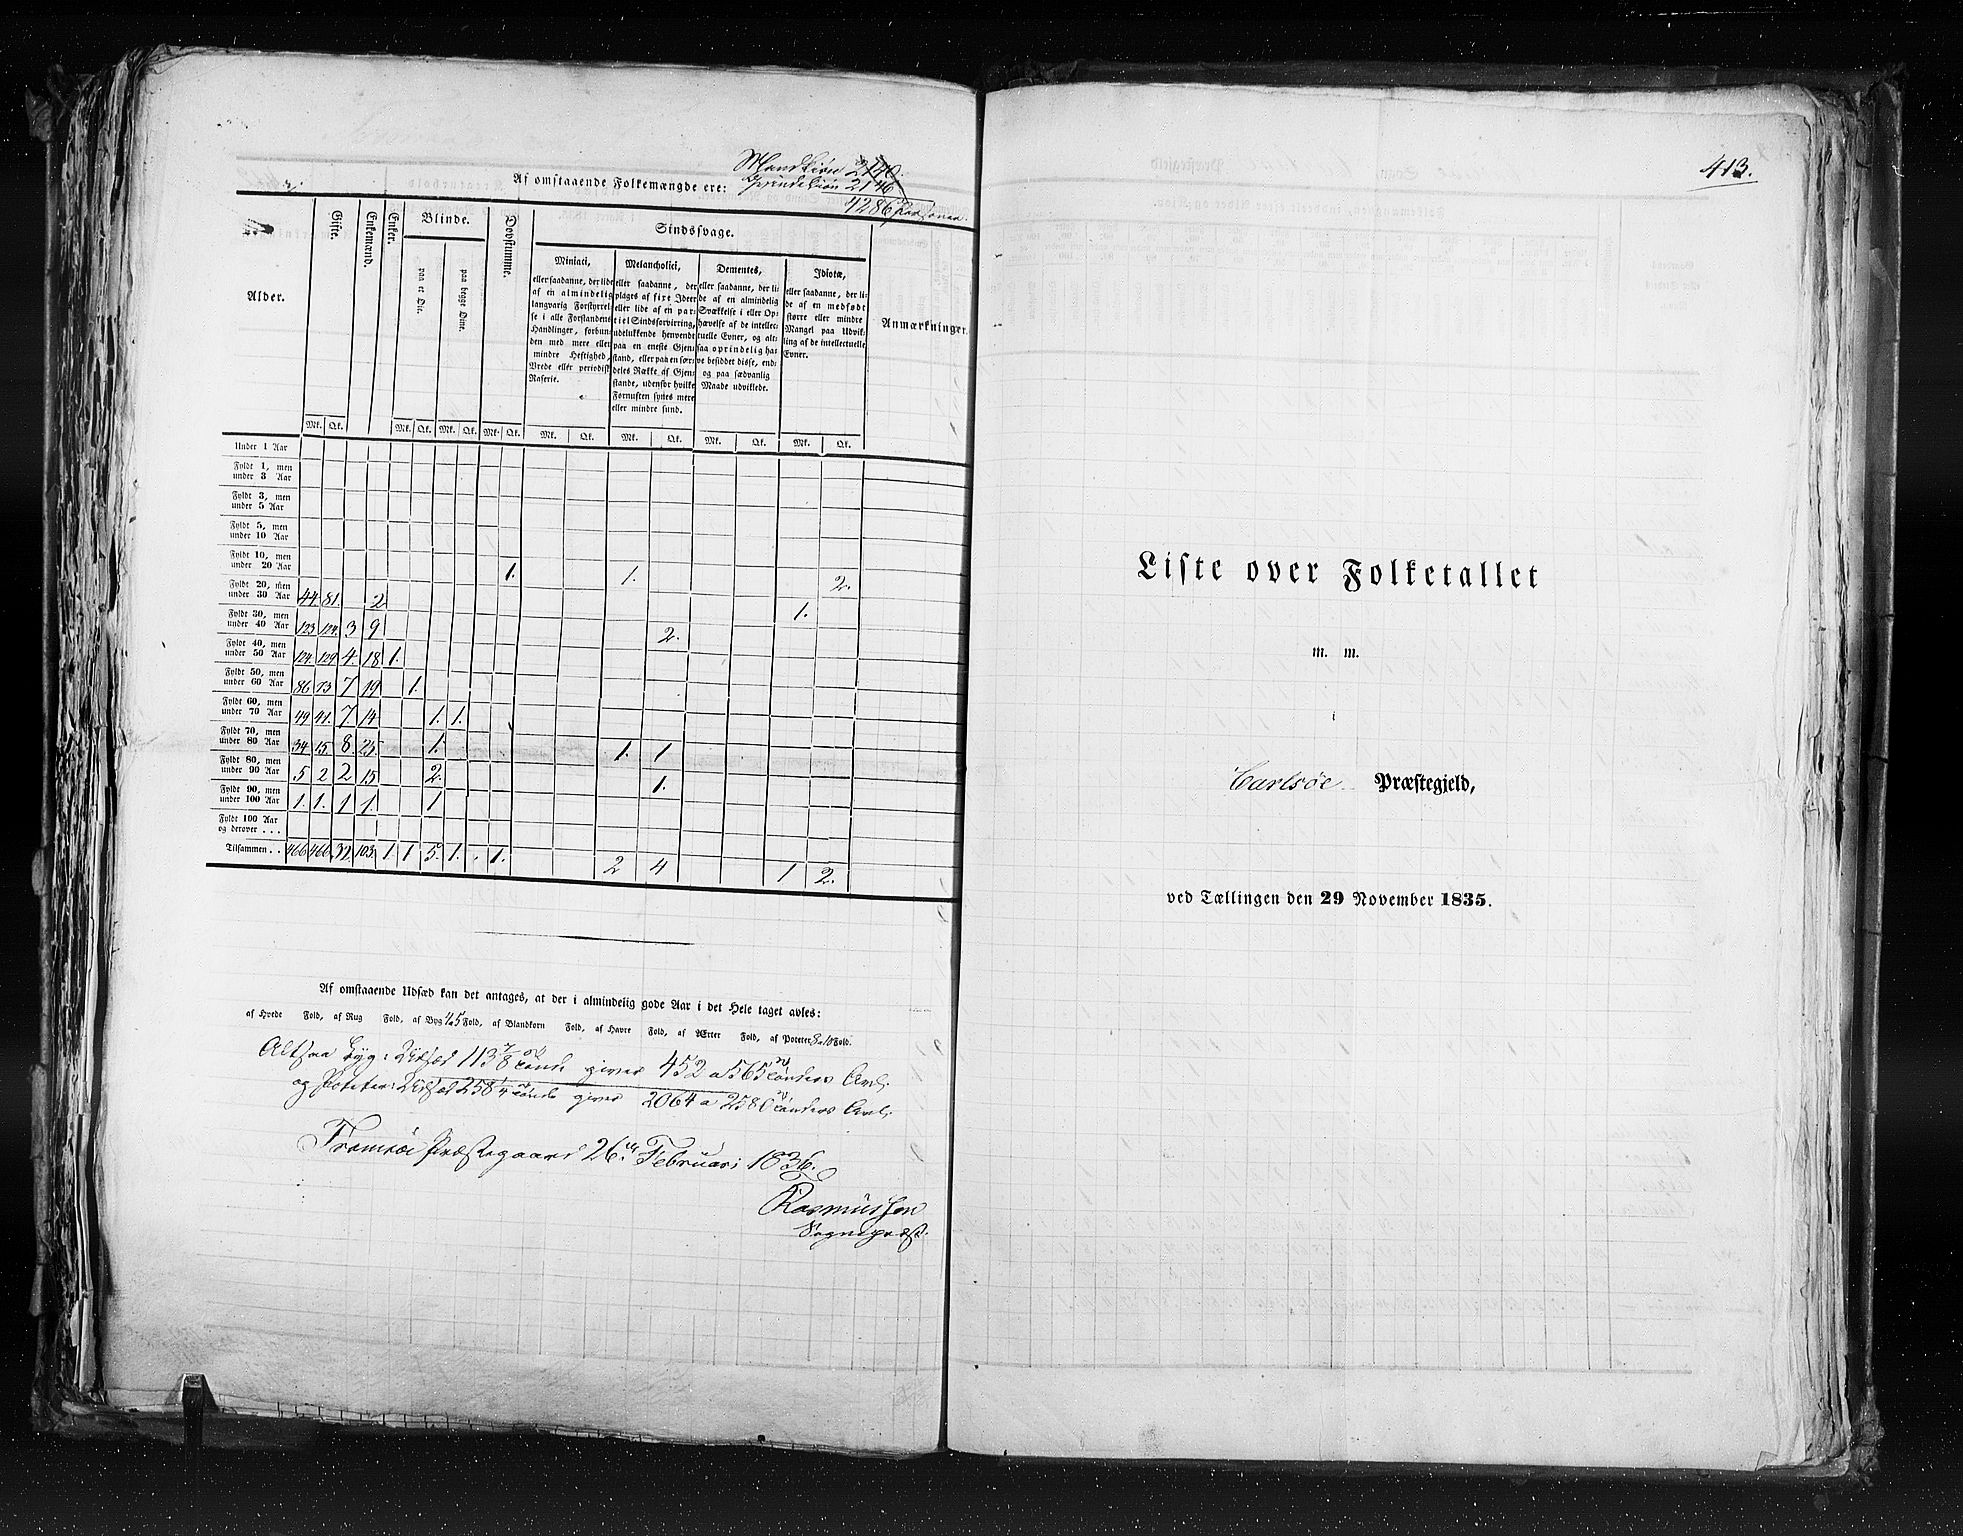 Mandkiøn 2140.
Af omstaaende Folkemængde ere: Qvindekiøn 2146.
4286 Personer.
Alder. Gifte. Enkemænd. Enker. Blinde. Døvstumme. Sindssvage. Anmærkninger.
paa et Øie. paa begge Øine.
Maniaci,
eller saadanne, der lide
af en almindelig
langvarig Forstyrrel-
se i alle Forstandens
Handlinger, forbun-
den med mere eller
mindre Heftighed,
Vrede eller periodisk
Raserie.
Melancholici,
eller saadanne, der
plages af fixe Ideer
eller lide af en par-
tiel Sindsforvirring,
udelukkende henvendt
paa en eneste Gjen-
stand, eller paa en sær-
deles Række af Gjen-
stande, udenfor hvilke
Fornuften synes mere
eller mindre sund.
Dementes,
eller saadanne, der li-
de af en almindelig
Svækkelse i eller Op-
hævelse af de intellec-
tuelle Evner, og alt-
saa oprindelig ha-
ve besiddet disse, end-
og paa sædvanlig
Maade udviklede.
Idiotæ,
eller saadanne, der li-
de af en medfødt
større eller mindre
Mangel paa Udvik-
ling af de intellectuelle
Evner.
Mk. Qk. Mk. Qk. Mk. Qk. Mk. Qk. Mk. Qk. Mk. Qk. Mk. Qk. Mk. Qk.
Under 1 Aar
Fyldt 1, men
under 3 Aar
Fyldt 3, men
under 5 Aar
Fyldt 5, men
under 10 Aar
Fyldt 10, men
under 20 Aar 1. 1. 2.
Fyldt 20, men
under 30 Aar 44. 81. 2 1.
Fyldt 30, men
under 40 Aar 123 124. 3 9 2.
Fyldt 40, men
under 50 Aar 124. 129 4. 18 1.
Fyldt 50, men
under 60 Aar 86 73 7 19 1.
Fyldt 60, men
under 70 Aar 49 41. 7 14 1. 1.
Fyldt 70, men
under 80 Aar 34 15 8. 25. 1. 1. 1
Fyldt 80, men
under 90 Aar 5 2 2 15 2. 1.
Fyldt 90, men
under 100 Aar 1. 1. 1 1. 1
Fyldt 100 Aar
og derover . . .
Tilsammen . . 466 466 32 103. 1. 1 5. 1. . 1. 2 4 1 2.
Af omstaaende Udsæd kan det antages, at der i almindelig gode Aar i det Hele taget avles:
af Hvede Fold, af Rug Fold, af Byg 4 a 5 Fold, af Blandkorn Fold, af Havre Fold, af Ærter Fold, af Poteter 8 a 10 Fold.
Altsaa Byg: Udsæd 113 7/8 Tønde giver 452 a 565 Tønders Avl.
og Poteter: Udsæd 258 1/4 Tønde giver 2064 a 2580 Tønders Avl.
Tromsøe Præstegaard 26de Februari 1836.
Rasmussen
Sognepræst.
413.
Liste over Folketallet
m. m.
i
Carlsøe Præstegjeld,
ved Tællingen den 29 November 1835.